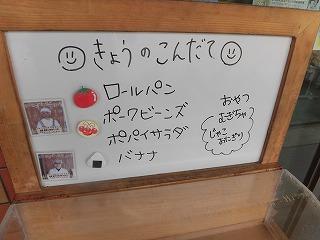 きょうのこんだて
ロールパン
ポークビーンズ
ポパイサラダ
バナナ
おやつ
むぎちゃ
じゃこ
おにぎり